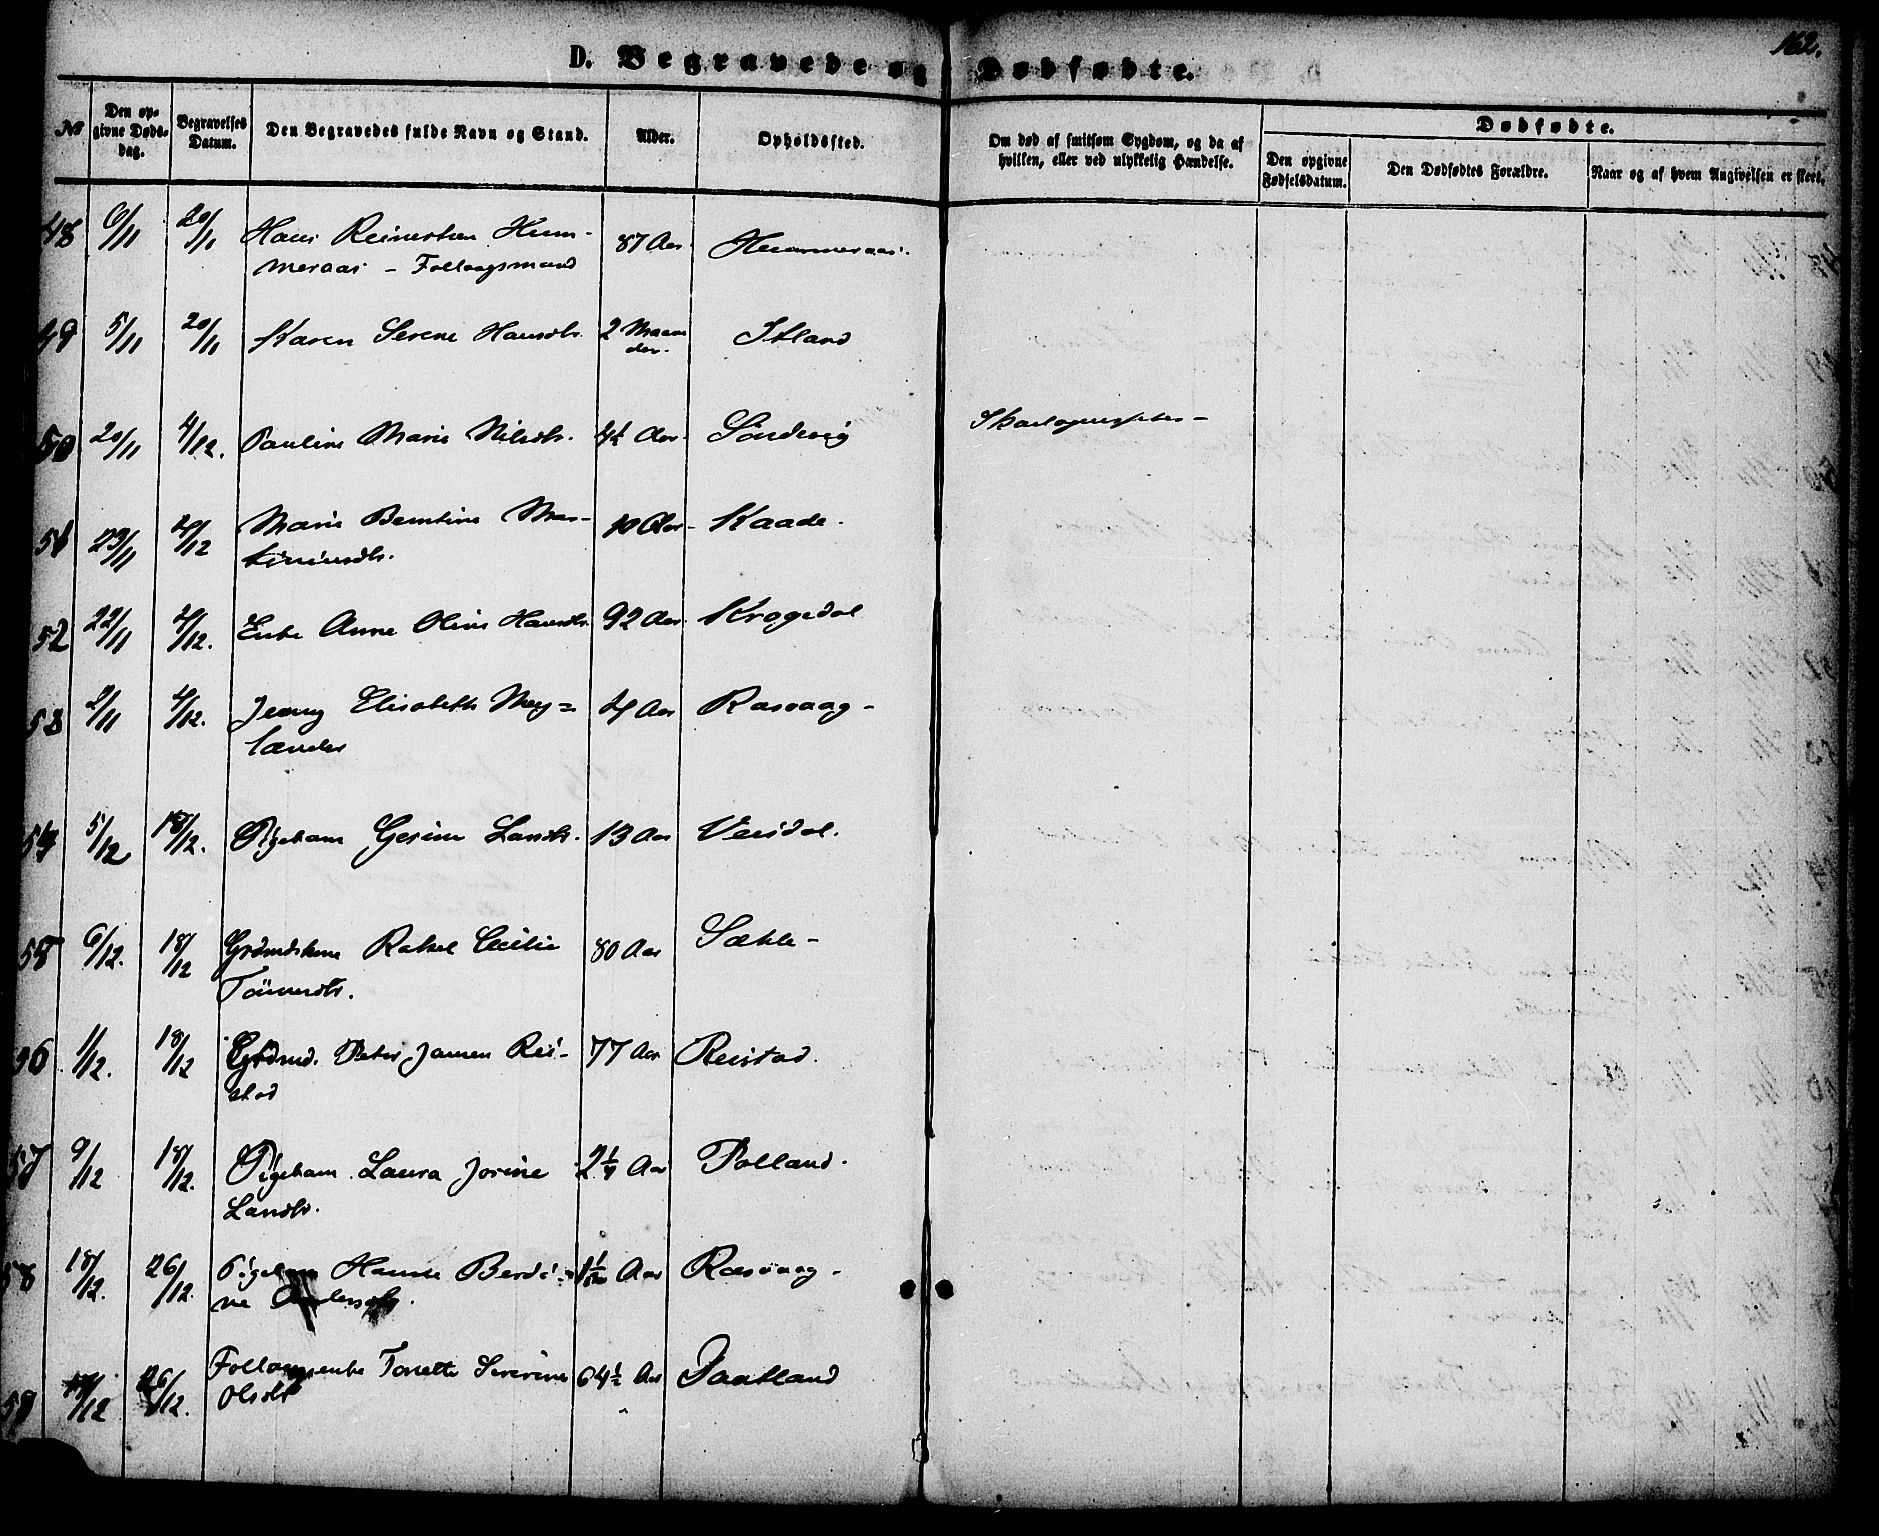 162.
D. Begravede og Dødfødte.
№
Den op-
givne Døds-
dag.
Begravelses
Datum.
Den Begravedes fulde Navn og Stand.
Alder.
Opholdssted.
Om død af smitsom Sygdom, og da af
hvilken, eller ved ulykkelig Hændelse.
Dødfødte.
Den opgivne
Fødselsdatum.
Den Dødfødtes Forældre.
Naar og af hvem Angivelsen er skeet.
48 6/11 20/11 Hans Reinertsen Hum- 87 Aar Hummeraas.
meraas – Follaugsmand
49 5/11 20/11 Karen Serene Hansdtr. 2 Maane Itland
der.
50 20/11 4/12. Pauline Marie Nilsdtr. 4½ Aar Söndevig Skarlagensfeber –
51 23/11 4/12 Marie Berntine Mar- 10 Aar Kaade.
tiniusdtr.
52 22/11 4/12. Enke Anne Oline Hansdtr. 92 Aar. Krogedal
53 2/11 4/12. Jenny Elisabeth Mey= 4 Aar Rasvaag –
lænder
54 5/12 18/12. Pigebarn Gesine Larsdtr. 13 Aar Veisdal.
55 6/12. 18/12 Grdmdskone Rakel Cecilie 80 Aar Sækle –
Tönnesdtr.
56 1/12. 18/12 Grdmd. Peter Jansen Rei- 77 Aar Reistad.
stad
57 9/12 18/12. Pigebarn Laura Jorine 2¼ Aar Polland.
Larsdtr.
58 18/12. 26/12. Pigebarn Hanne Berdi- Aar Rasvaag –
ne Andersdtr.
59 26/12. Follaugsenke Tonette Severine 64½ Aar Paatland
Olsdtr